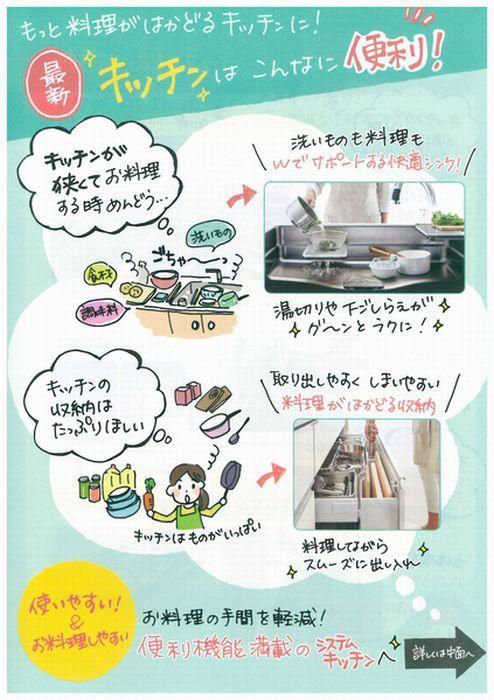 もっと料理がはかどるキッチンに!
最新
キッチンは こんなに 便利!
キッチンが
狭くてお料理
する時めんどう…
洗いもの
ごちゃ〜っ
食材
調味料
洗いものも料理も
Wでサポートする快適シンク!
湯切りや下ごしらえが
グ〜ンとラクに!
キッチンの
収納は
たっぷりほしい
キッチンはものがいっぱい
取り出しやすく しまいやすい
料理がはかどる収納
料理しながら
スムーズに出し入れ
使いやすい!
&
お料理しやすい
お料理の手間を軽減!
便利機能満載の システム
キッチンへ
詳しくは中面へ